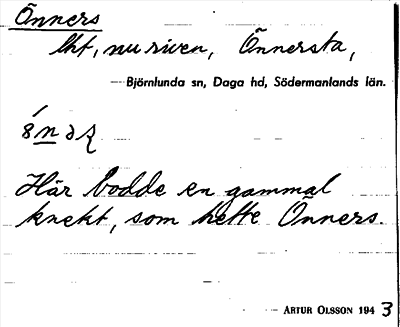 Önners
lht, nu riven, Önnersta,
Björnlunda sn, Daga hd, Södermanlands län.
Här bodde en gammal
knekt, som hette Önners.
ARTUR OLSSON 1943